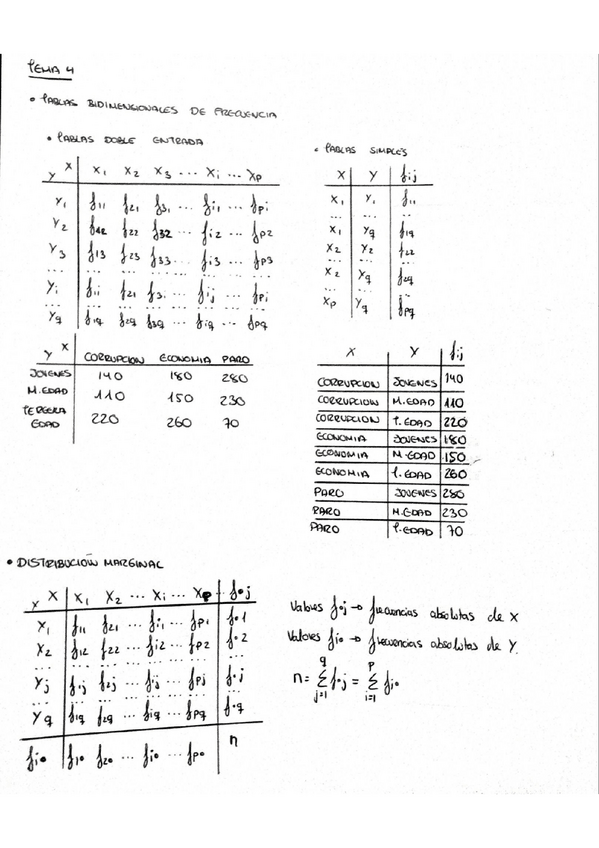 TEMA 4
• TABLAS BIDIMENSIONALES DE FRECUENCIA
• TABLAS DOBLE ENTRADA
Y X X1 X2 X3 ... Xi ... Xp
Y1 f11 f21 f31 ... fi1 ... fpi
Y2 f12 f22 f32 ... fi2 ... fp2
Y3 f13 f23 f33 ... fi3 ... fp3
... ... ... ... ... ...
Yi fii f2i f3i ... fij ... fpi
... ... ... ... ... ...
Yq f1q f2q f3q ... fiq ... fpq
• TABLAS SIMPLES
X Y fij
X1 Y1 f11
... ... ...
X1 Yq f1q
X2 Y2 f22
... ... ...
X2 Yq f2q
... ... ...
Xp Yq fpq
Y X CORRUPCION ECONOMIA PARO
JOVENES 140 180 280
M.EDAD 110 150 230
TERCERA EDAD 220 260 70
X Y fij
CORRUPCION JOVENES 140
CORRUPCION M.EDAD 110
CORRUPCION T.EDAD 220
ECONOMIA JOVENES 180
ECONOMIA M.EDAD 150
ECONOMIA T.EDAD 260
PARO JOVENES 280
PARO M.EDAD 230
PARO T.EDAD 70
• DISTRIBUCIÓN MARGINAL
Y X X1 X2 ... Xi ... Xp f•j
X1 f11 f21 ... fi1 ... fp1 f•1
X2 f12 f22 ... fi2 ... fp2 f•2
... ... ... ... ... ...
Yj f1j f2j ... fij ... fpj f•j
... ... ... ... ... ...
Yq f1q f2q ... fiq ... fpq f•q
fi• f1• f2• ... fi• ... fp• n
Valores f•j → frecuencias absolutas de X
Valores fi• → frecuencias absolutas de Y.
n = Σ(j=1, q) f•j = Σ(i=1, p) fi•